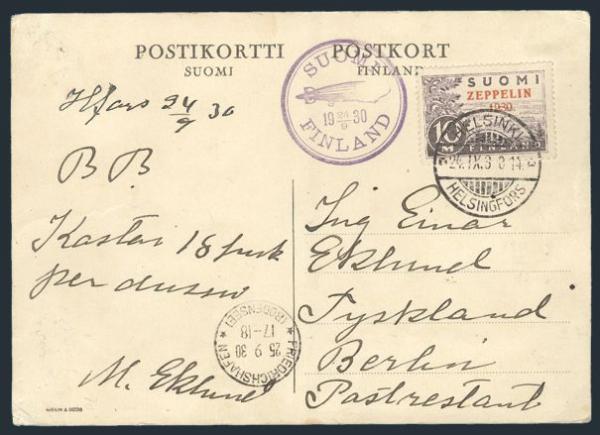 POSTIKORTTI POSTKORT
SUOMI FINLAND
SUOMI
19 24/9 30
FINLAND
SUOMI
ZEPPELIN
1930
10
M FINLAND
HELSINKI
24.IX.3 8 14
HELSINGFORS
Hfors 24/9 30
B B
Kostar 18 fmk
per dussin
M. Eklund
Ing Einar
Eklund
Tyskland
Berlin
Postrestant
FRIEDRICHSHAFEN
25 9.30
17-18
(BODENSEE)